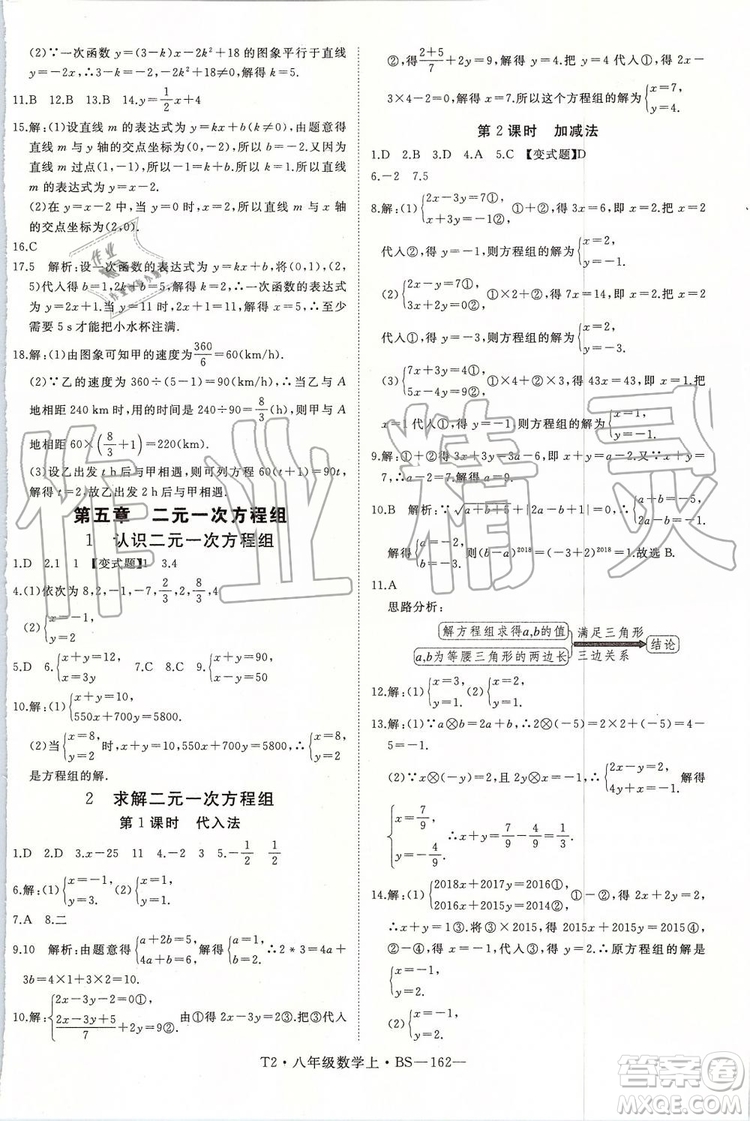 (2)∵一次函数 y=(3-k)x-2k²+18 的图象平行于直线
y=-x,∴3-k=-1,解得 k=5.
11.B 12.B 13.B 14.y=1/2x+4
15.解:(1)设直线 m 的表达式为 y=kx+b(k≠0),由题意得
直线 m 与 y 轴的交点坐标为(0,-2),∴b=-2.又∵直
线 m 过点(1,-1),∴k+b=-1,∴k=1,∴直线 m 的
表达式为 y=x-2.
(2)在 y=x-2 中,当 y=0 时,x=2,∴直线 m 与 x 轴
的交点坐标为(2,0).
16.C
17.5 解析:设一次函数的表达式为 y=kx+b,将(0,1),(2,
5)代入得 b=1,2k+b=5,解得 k=2,b=1,∴函数表达式
为 y=2x+1.当 y=11 时,2x+1=11,解得 x=5,∴至少
需要 5 s才能把小水杯注满.
18.解:(1)由图象可知甲的速度为360/6=60(km/h).
(2)∵乙的速度为 360÷(5-1)=90(km/h),∴乙与 A
地相距 240 km 时,用的时间是 240÷90=8/3(h),则甲与 A
地相距 60×(8/3+1)=220(km).
(3)设乙出发 t h 后与甲相遇,可列方程 60(t+1)=90t,
解得 t=2.故乙出发 2 h 后与甲相遇.
第五章 二元一次方程组
1 认识二元一次方程组
1.D 2.1 1 【变式题】1 3.4
4.(1)依次为 8,2,-1,-4,2/3,2,8/3,3
(2){x=-1,
y=2
5.D 6.{x+y=12,
y=x+4 7.C 8.C 9.{x+y=30,
x=7y
10.解:(1){x+y=10,
550x+700y=5800.
(2)当{x=8,
y=2时,满足{x+y=10,
550x+700y=5800,∴{x=8,
y=2
是方程组的解.
2 求解二元一次方程组
第 1 课时 代入法
1.D 2.D 3.x-25 11 4.-2 3 5.-1/2 1/2
6.解:(1){x=-1,
y=3. (2){x=1,
y=-1.
7.A 8.二
9.10 解析:由题意可得{a+2b=5,
4a+b=6,解得{a=1,
b=2,∴2*3=4a+
3b=4×1+3×2=10.
10.解:{2x-3y-2=0①,
(2x-3y+5)/7+2y=9②.由①得 2x-3y=2③.将③代入
②,得(2+5)/7+2y=9,解得 y=4.把 y=4 代入③,得 2x-
3×4=2,解得 x=7.所以这个方程组的解为{x=7,
y=4.
第 2 课时 加减法
1.D 2.B 3.D 4.A 5.C 【变式题】D
6.-2 7.5
8.解:(1){2x-3y=7①,
x+3y=-1②,①+②得 3x=6,即 x=2.把 x=2
代入②得 y=-1,则方程组的解为{x=2,
y=-1.
(2){2x+y=1①,
x-2y=8②,①×2+②得 5x=10,即 x=2.把 x=2
代入①得 y=-3,则方程组的解为{x=2,
y=-3.
(3){7x+3y=4①,
5x-4y=9②,①×4+②×3 得 43x=43,即 x=1.把
x=1 代入①得 y=-1,则方程组的解为{x=1,
y=-1.
10.B 解析:
解得 则(b-a)²⁰¹⁸=(-3+2)²⁰¹⁸=1.故选 B.
11.A
思路分析:
解方程组求得a,b的值
a,b为等腰三角形的两边长
满足三角形
三边关系
结论
12.解:(1){x=3,
y=1. (2){x=2,
y=-1.
13.解:(1)∵a⊗b=2a+b,∴2⊗(-5)=2×2+(-5)=4-
5=-1.
14.解:(1){2018x+2017y=2016①,
2016x+2015y=2014②,①-②得 2x+2y=2,
∴x+y=1③.将③×2015,得 2015x+2015y=2015④,
②-④得 x=-1,将 x=-1 代入③得 y=2.∴原方程组的解是
{x=-1,
y=2.
T2·八年级数学上·BS—162—
作业精灵
答案圈
MXQE.COM